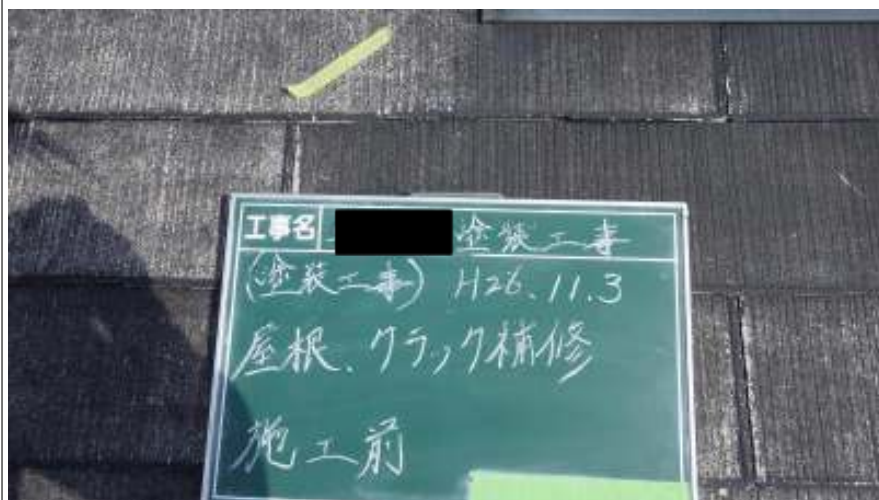 工事名 塗装工事
(塗装工事) H26.11.3
屋根、クラック補修
施工前